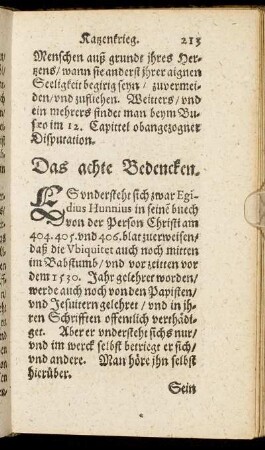 Katzenkrieg. 213
Menschen auß grundt jhres Her-
tzens / wann sie anderst jhrer aignen
Seeligkeit begirig seyn / zuvermei-
den / vnd zufliehen. Weitters / vnd
ein mehrers findet man beym Bu-
sæo im 12. Capittel obangezogner
Disputation.
Das achte Bedencken.
ES vndersteht sich zwar Egi-
dius Hunnius in seinē buech
von der Person Christi am
404. 405. vnd 406. blat zuerweisen /
daß die Vbiquitet auch noch mitten
im Babstumb / vnd vor zeitten vor
dem 1530. Jahr gelehret worden /
werde auch noch von den Papisten /
vnd Jesuitern gelehret / vnd in jh-
ren Schrifften offentlich verthädi-
get. Aber er vndersteht sichs nur /
vnd im werck selbst betriegt er sich /
vnd andere. Man höre jhn selbst
hierüber.
Sein